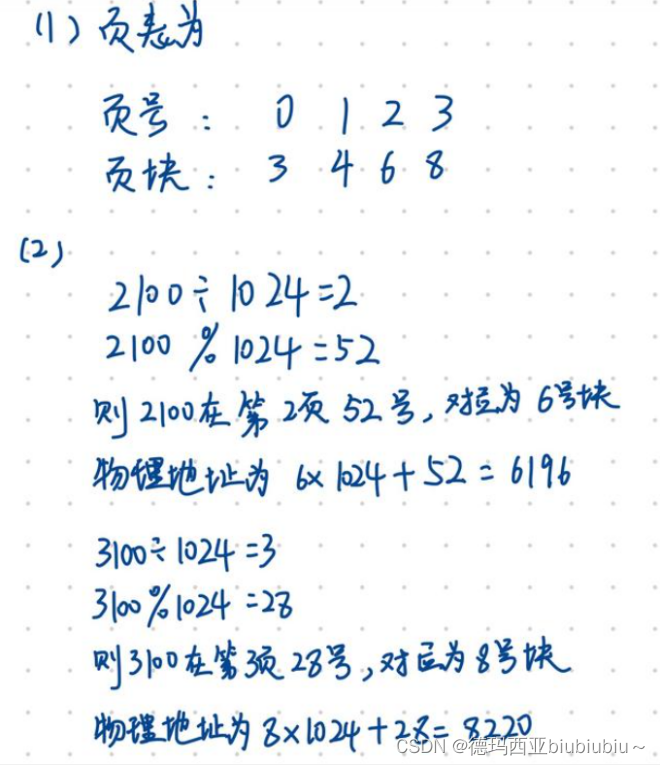 (1) 页表为
页号: 0 1 2 3
页块: 3 4 6 8
(2)
2100÷1024=2
2100 % 1024=52
则2100在第2页52号,对应为6号块
物理地址为 6×1024+52=6196
3100÷1024=3
3100%1024=28
则3100在第3页28号,对应为8号块
物理地址为8×1024+28=8220
CSDN @德玛西亚biubiubiu~